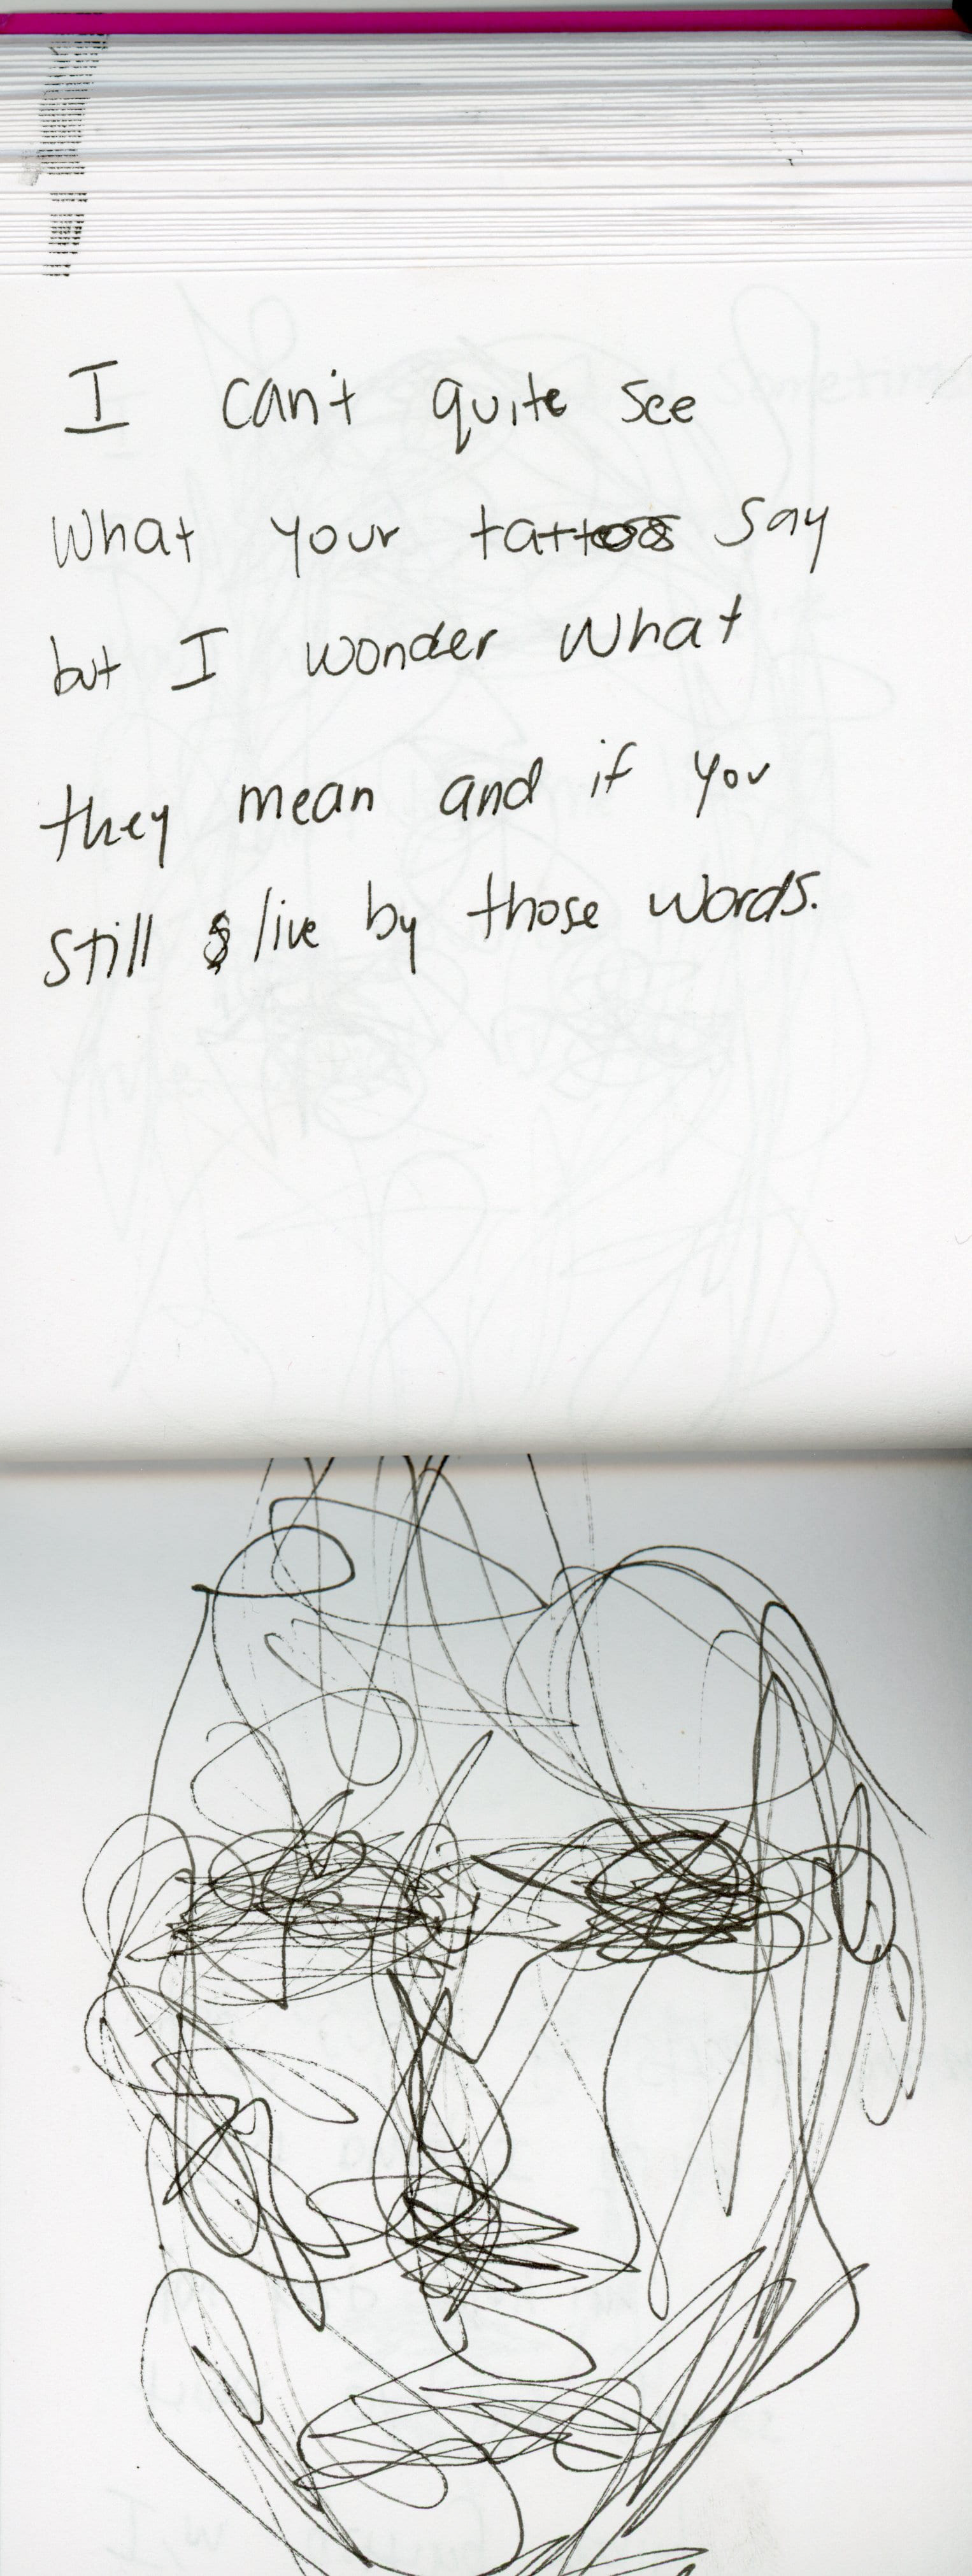 I can't quite see
what your tattoos say
but I wonder what
they mean and if you
still live by those words.